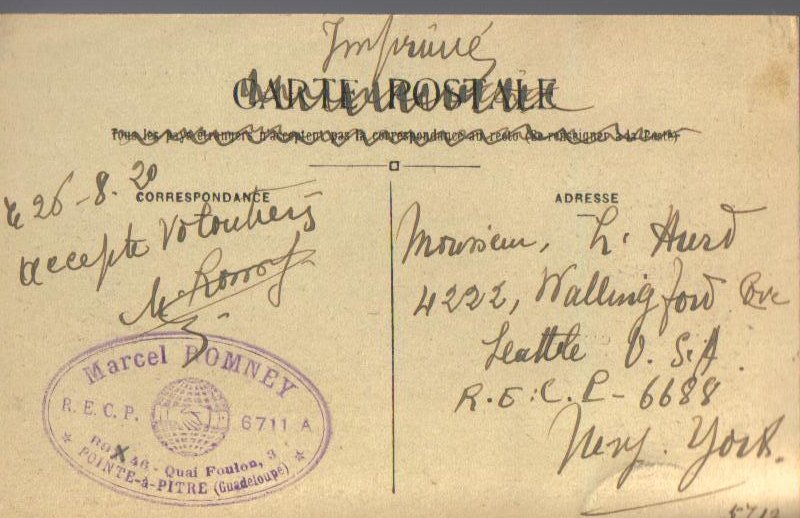 Imprimé
CARTE POSTALE
Tous les pays étrangers n'acceptent pas la correspondance au recto (Se renseigner à la Poste)
CORRESPONDANCE
le 26-8.20
accepte Volontiers
M Romney
Marcel ROMNEY
R.E.C.P. 6711 A
BOX 46 - Quai Foulon, 3
POINTE-à-PITRE (Guadeloupe)
ADRESSE
Monsieur, L. Hurd
4222, Wallingford Ave
Seattle U.S.A
R.E.C.P-6688
New York.